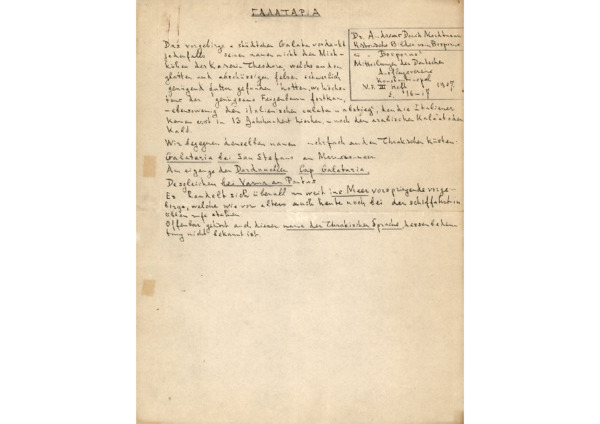 ΓΑΛΑΤΑΡΙΑ
Dr. Andreas David Mordtmann
Historische Bilder vom Bosporus
in "Bosporus"
Mitteilungen des Deutschen
Ausflugsvereins
Konstantinopel
N.F. III Heft 1907
S.
Das vorgebirge städtchen Galata verdankt
jedenfalls seinen namen nicht den Milch-
kühen der Kaiserin Theodora, welche an den
glatten und abschüssigen felsen schwerlich
genügend futter gefunden hatten,
eine der
ebensowenig den italienischen calata = abstieg, denn die Italiener
kamen erst im 13 Jahrhundert hierher, noch dem arabischen
Kald.
Wir begegnen denselben namen mehrfach an den Thrakischen Küsten:
Galataria bei San Stefano am Marmarameer.
Am eigange der Dardanellen Cap Galataria.
Desgleichen bei Varna am Pontus
Es handelt sich überall um weit ins Meer vorspringende vorge-
birge, welche wie vor alters auch heute noch bei der schiffahrt in
stehen.
Offenbar gehört auch dieser name der Thrakischen Sprache, dessen bedeu-
tung nicht bekannt ist.